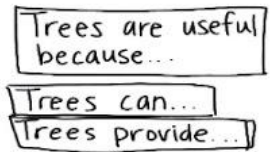 Trees are useful
because...
Trees can...
Trees provide...